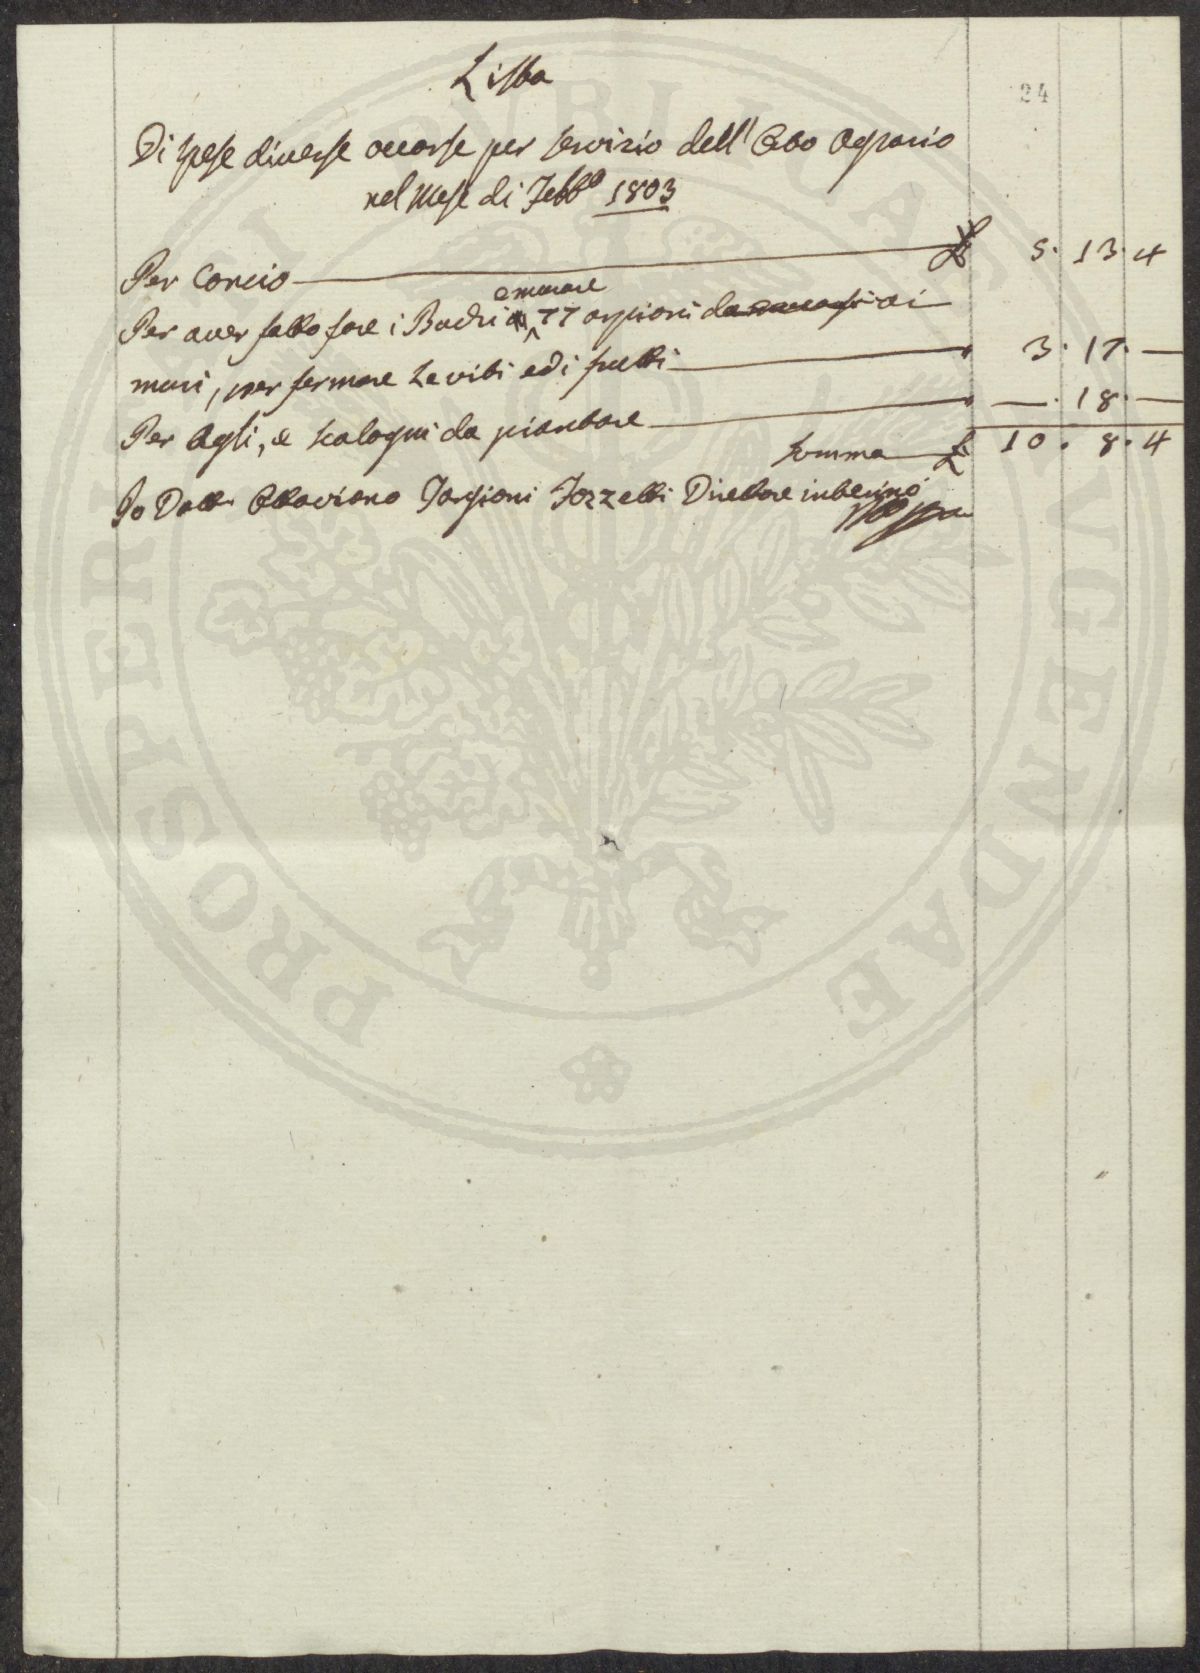 24
Lista
Di spese diverse occorse per servizio dell'Orto Agrario
nel Mese di Febb.º 1803
Per Concio — £ 5. 13. 4
e murare
Per aver fatto fare i Buchi a 77 arpioni da ai
muri, per fermare le viti ed i frutti — 3. 17. —
Per Agli, e scalogni da piantare — —. 18. —
Somma £ 10. 8. 4
Io Dott. Ottaviano Targioni Tozzetti Direttore
PROSPERITATI PUBLICAE AUGENDAE